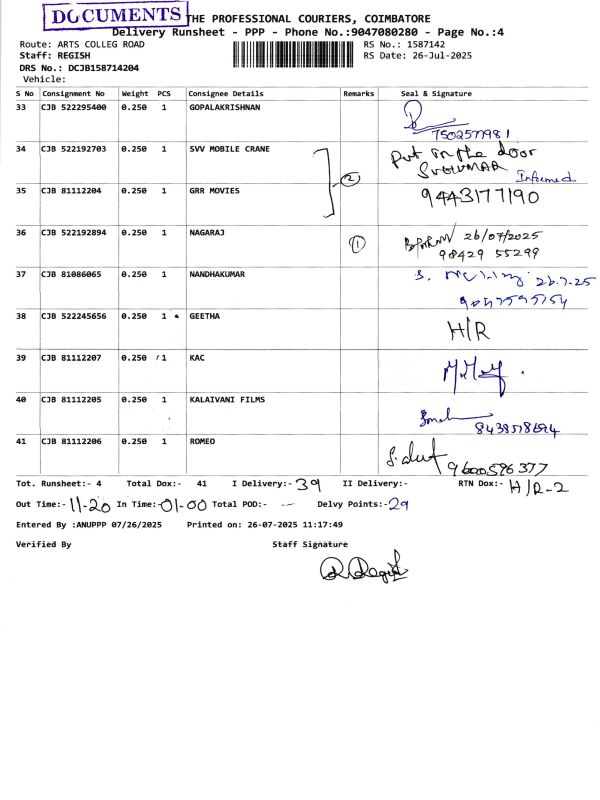 DOCUMENTS
THE PROFESSIONAL COURIERS, COIMBATORE
Delivery Runsheet - PPP - Phone No.:9047080280 - Page No.:4
Route: ARTS COLLEG ROAD RS No.: 1587142
Staff: REGISH RS Date: 26-Jul-2025
DRS No.: DCJB158714204
Vehicle:
S No Consignment No Weight PCS Consignee Details Remarks Seal & Signature
33 CJB 522295400 0.250 1 GOPALAKRISHNAN
7502577981
34 CJB 522192703 0.250 1 SVV MOBILE CRANE Put in the door
② Informed
35 CJB 81112204 0.250 1 GRR MOVIES 9443177190
36 CJB 522192894 0.250 1 NAGARAJ ① 26/07/2025
98429 55299
37 CJB 81086065 0.250 1 NANDHAKUMAR S. 26.7.25
38 CJB 522245656 0.250 1 GEETHA H/R
39 CJB 81112207 0.250 1 KAC
40 CJB 81112205 0.250 1 KALAIVANI FILMS
41 CJB 81112206 0.250 1 ROMEO
9600596377
Tot. Runsheet:- 4 Total Dox:- 41 I Delivery:- 39 II Delivery:- RTN Dox:- H/R-2
Out Time:- 11-20 In Time:- 01-00 Total POD:- - Delvy Points:- 29
Entered By :ANUPPP 07/26/2025 Printed on: 26-07-2025 11:17:49
Verified By Staff Signature
R. Regish